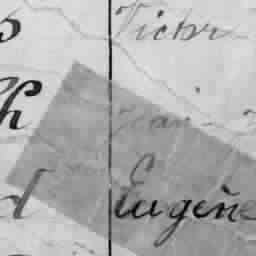 s Victor
h Jean-
d Eugène